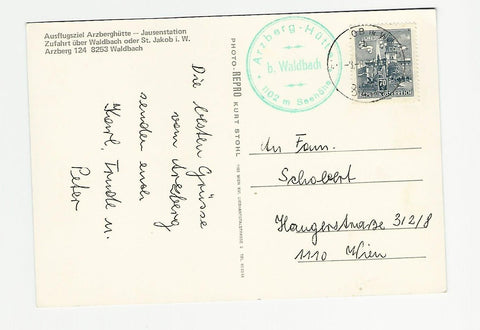 Ausflugsziel Arzberghütte — Jausenstation
Zufahrt über Waldbach oder St. Jakob i. W.
Arzberg 124 8253 Waldbach
Die besten Grüsse
vom Arzberg
senden euch
Karl, Trude u.
Peter
PHOTO-REPRO KURT STOHL
Arzberg-Hütte
b. Waldbach
1102 m Seehöhe
An Fam.
Schobert
Haugerstraße 3/2/8
1110 Wien